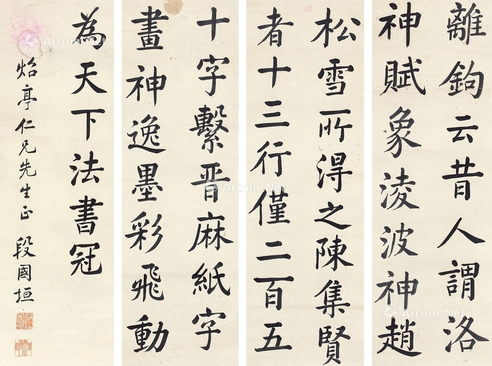 離鉤云昔人謂洛
神賦象淩波神趙
松雪所淂之陳集賢
者十三行僅二百五
十字繫晋麻紙字
畫神逸墨彩飛動
為天下法書冠
焰亭仁兄先生正 段國垣